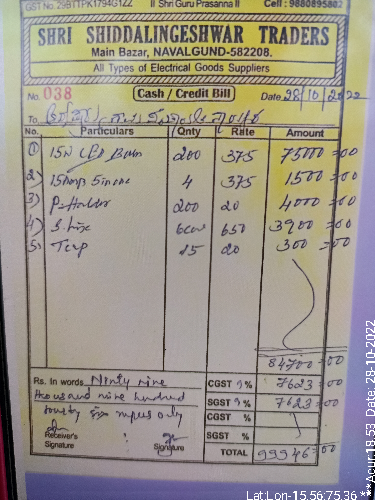 GST No. 29BTTPK1794G1ZZ || Shri Guru Prasanna || Cell : 9880895802
SHRI SHIDDALINGESHWAR TRADERS
Main Bazar, NAVALGUND-582208.
All Types of Electrical Goods Suppliers
No. 038 Cash / Credit Bill Date 28/10/2022
To
No. Particulars Qnty Rate Amount
1) 15W LED 200 375 75000=00
2) 15Amp 4 375 1500=00
3) P-Holder 200 20 4000=00
4) 650 3900=00
5) Tap 15 20 300=00
84700=00
Rs. In words Ninty nine CGST 9% 7623=00
thousand nine hundred SGST 9% 7623=00
fourty six rupees only CGST %
Receiver's Signature Signature SGST %
TOTAL 99946=00
Lat:Lon-15.56:75.36 ***Acur:18.53 Date, 28-10-2022